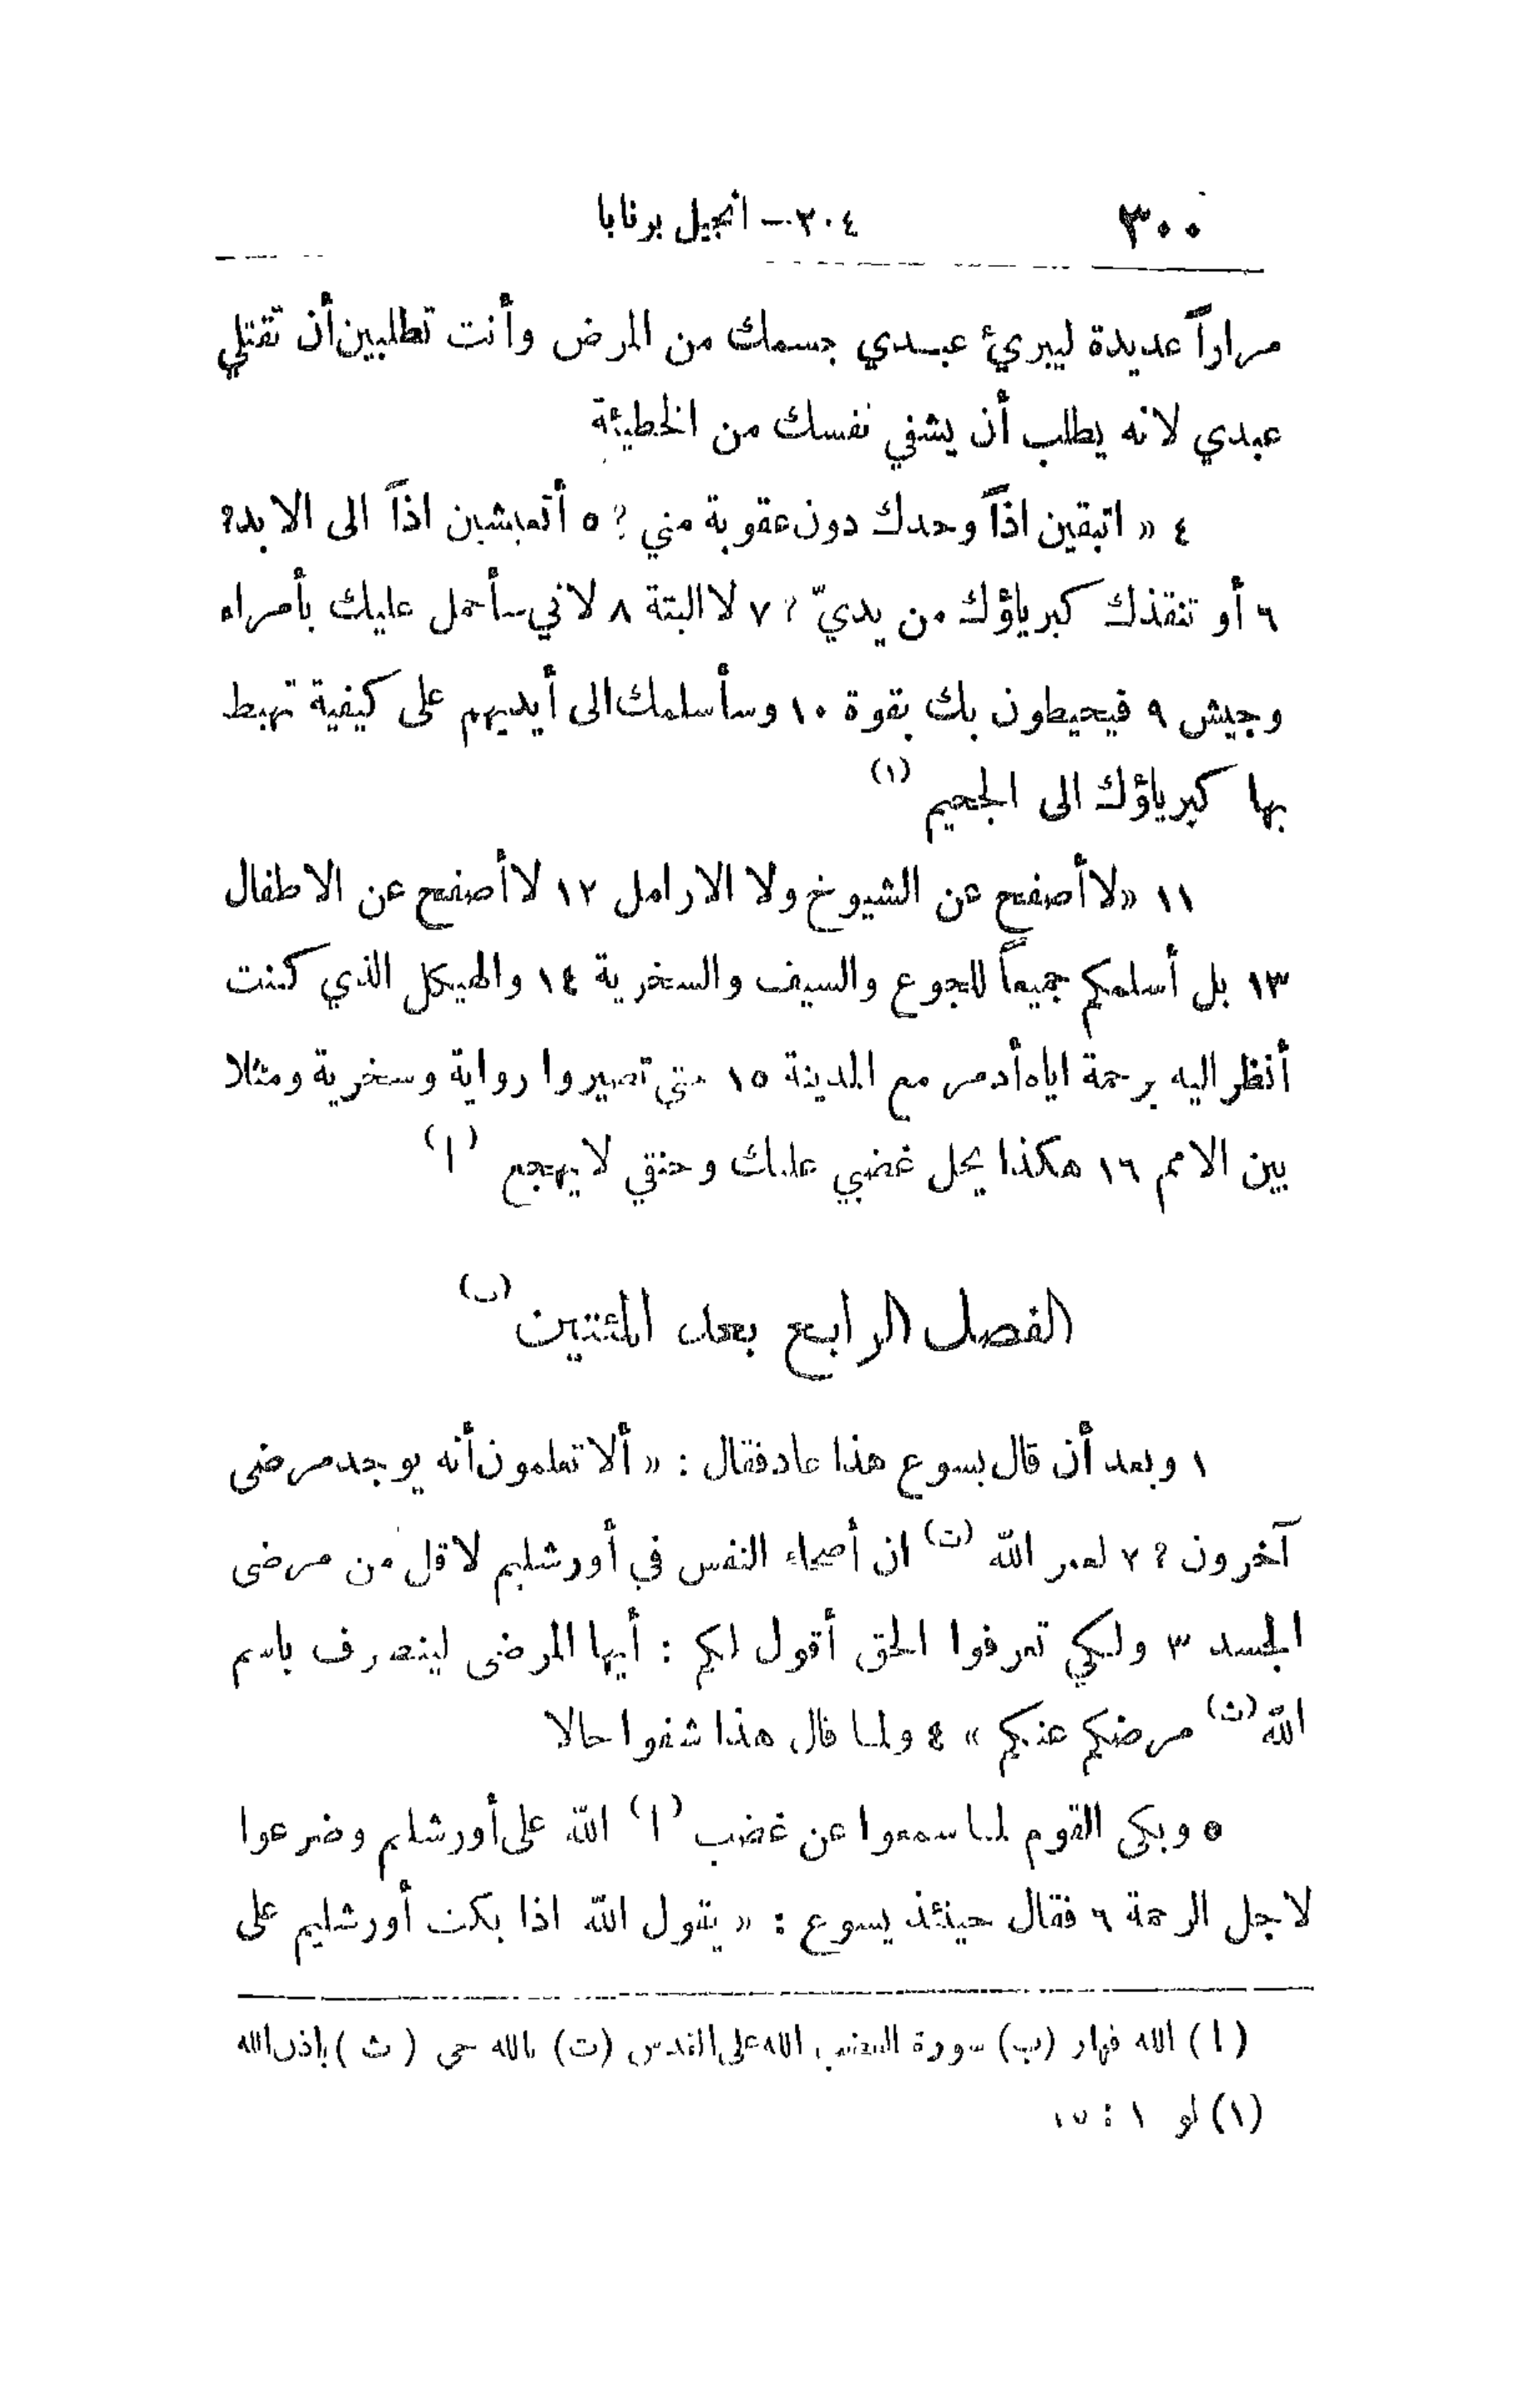 ٣٠٠ ٢٠٤ – انجيل برنابا
مراراً عديدة ليبريُ عبدي جسمك من المرض وأنت تطلبين أن تقتلي
عبدي لانه يطلب أن يشفي نفسك من الخطيئة
٤ « اتبقين اذاً وحدك دون عقوبة مني ? ٥ أتعيشين اذاً الى الابد?
٦ أو تنقذك كبرياؤك من يديّ ? ٧ لا البتة ٨ لاني سأحمل عليك بأمراء
وجيش ٩ فيحيطون بك بقوة ١٠ وسأسلمك الى أيديهم على كيفية تهبط
بها كبرياؤك الى الجحيم (١)
١١ «لا أصفح عن الشيوخ ولا الارامل ١٢ لا أصفح عن الاطفال
١٣ بل أسلمكم جميعاً للجوع والسيف والسخرية ١٤ والهيكل الذي كنت
أنظر اليه برحمة اياه أدمر مع المدينة ١٥ حتى تصيروا رواية وسخرية ومثلا
بين الامم ١٦ هكذا يحل غضبي عليك وحنقي لا يهجع (ا)
الفصل الرابع بعد المئتين (ب)
١ وبعد أن قال يسوع هذا عاد فقال : « ألا تعلمون أنه يوجد مرضى
آخرون ? ٢ لعمر الله (ت) ان أصحاء النفس في أورشليم لاقل من مرضى
الجسد ٣ ولكي تعرفوا الحق أقول لكم : أيها المرضى لينصرف باسم
الله (ث) مرضكم عنكم » ٤ ولما قال هذا شفوا حالا
٥ وبكى القوم لما سمعوا عن غضب (ا) الله على أورشليم وضرعوا
لاجل الرحمة ٦ فقال حينئذ يسوع : « يقول الله اذا بكت أورشليم على
(ا) الله قهار (ب) سورة الغضب الله على القدس (ت) بالله حى (ث) باذن الله
(١) لو ١ :